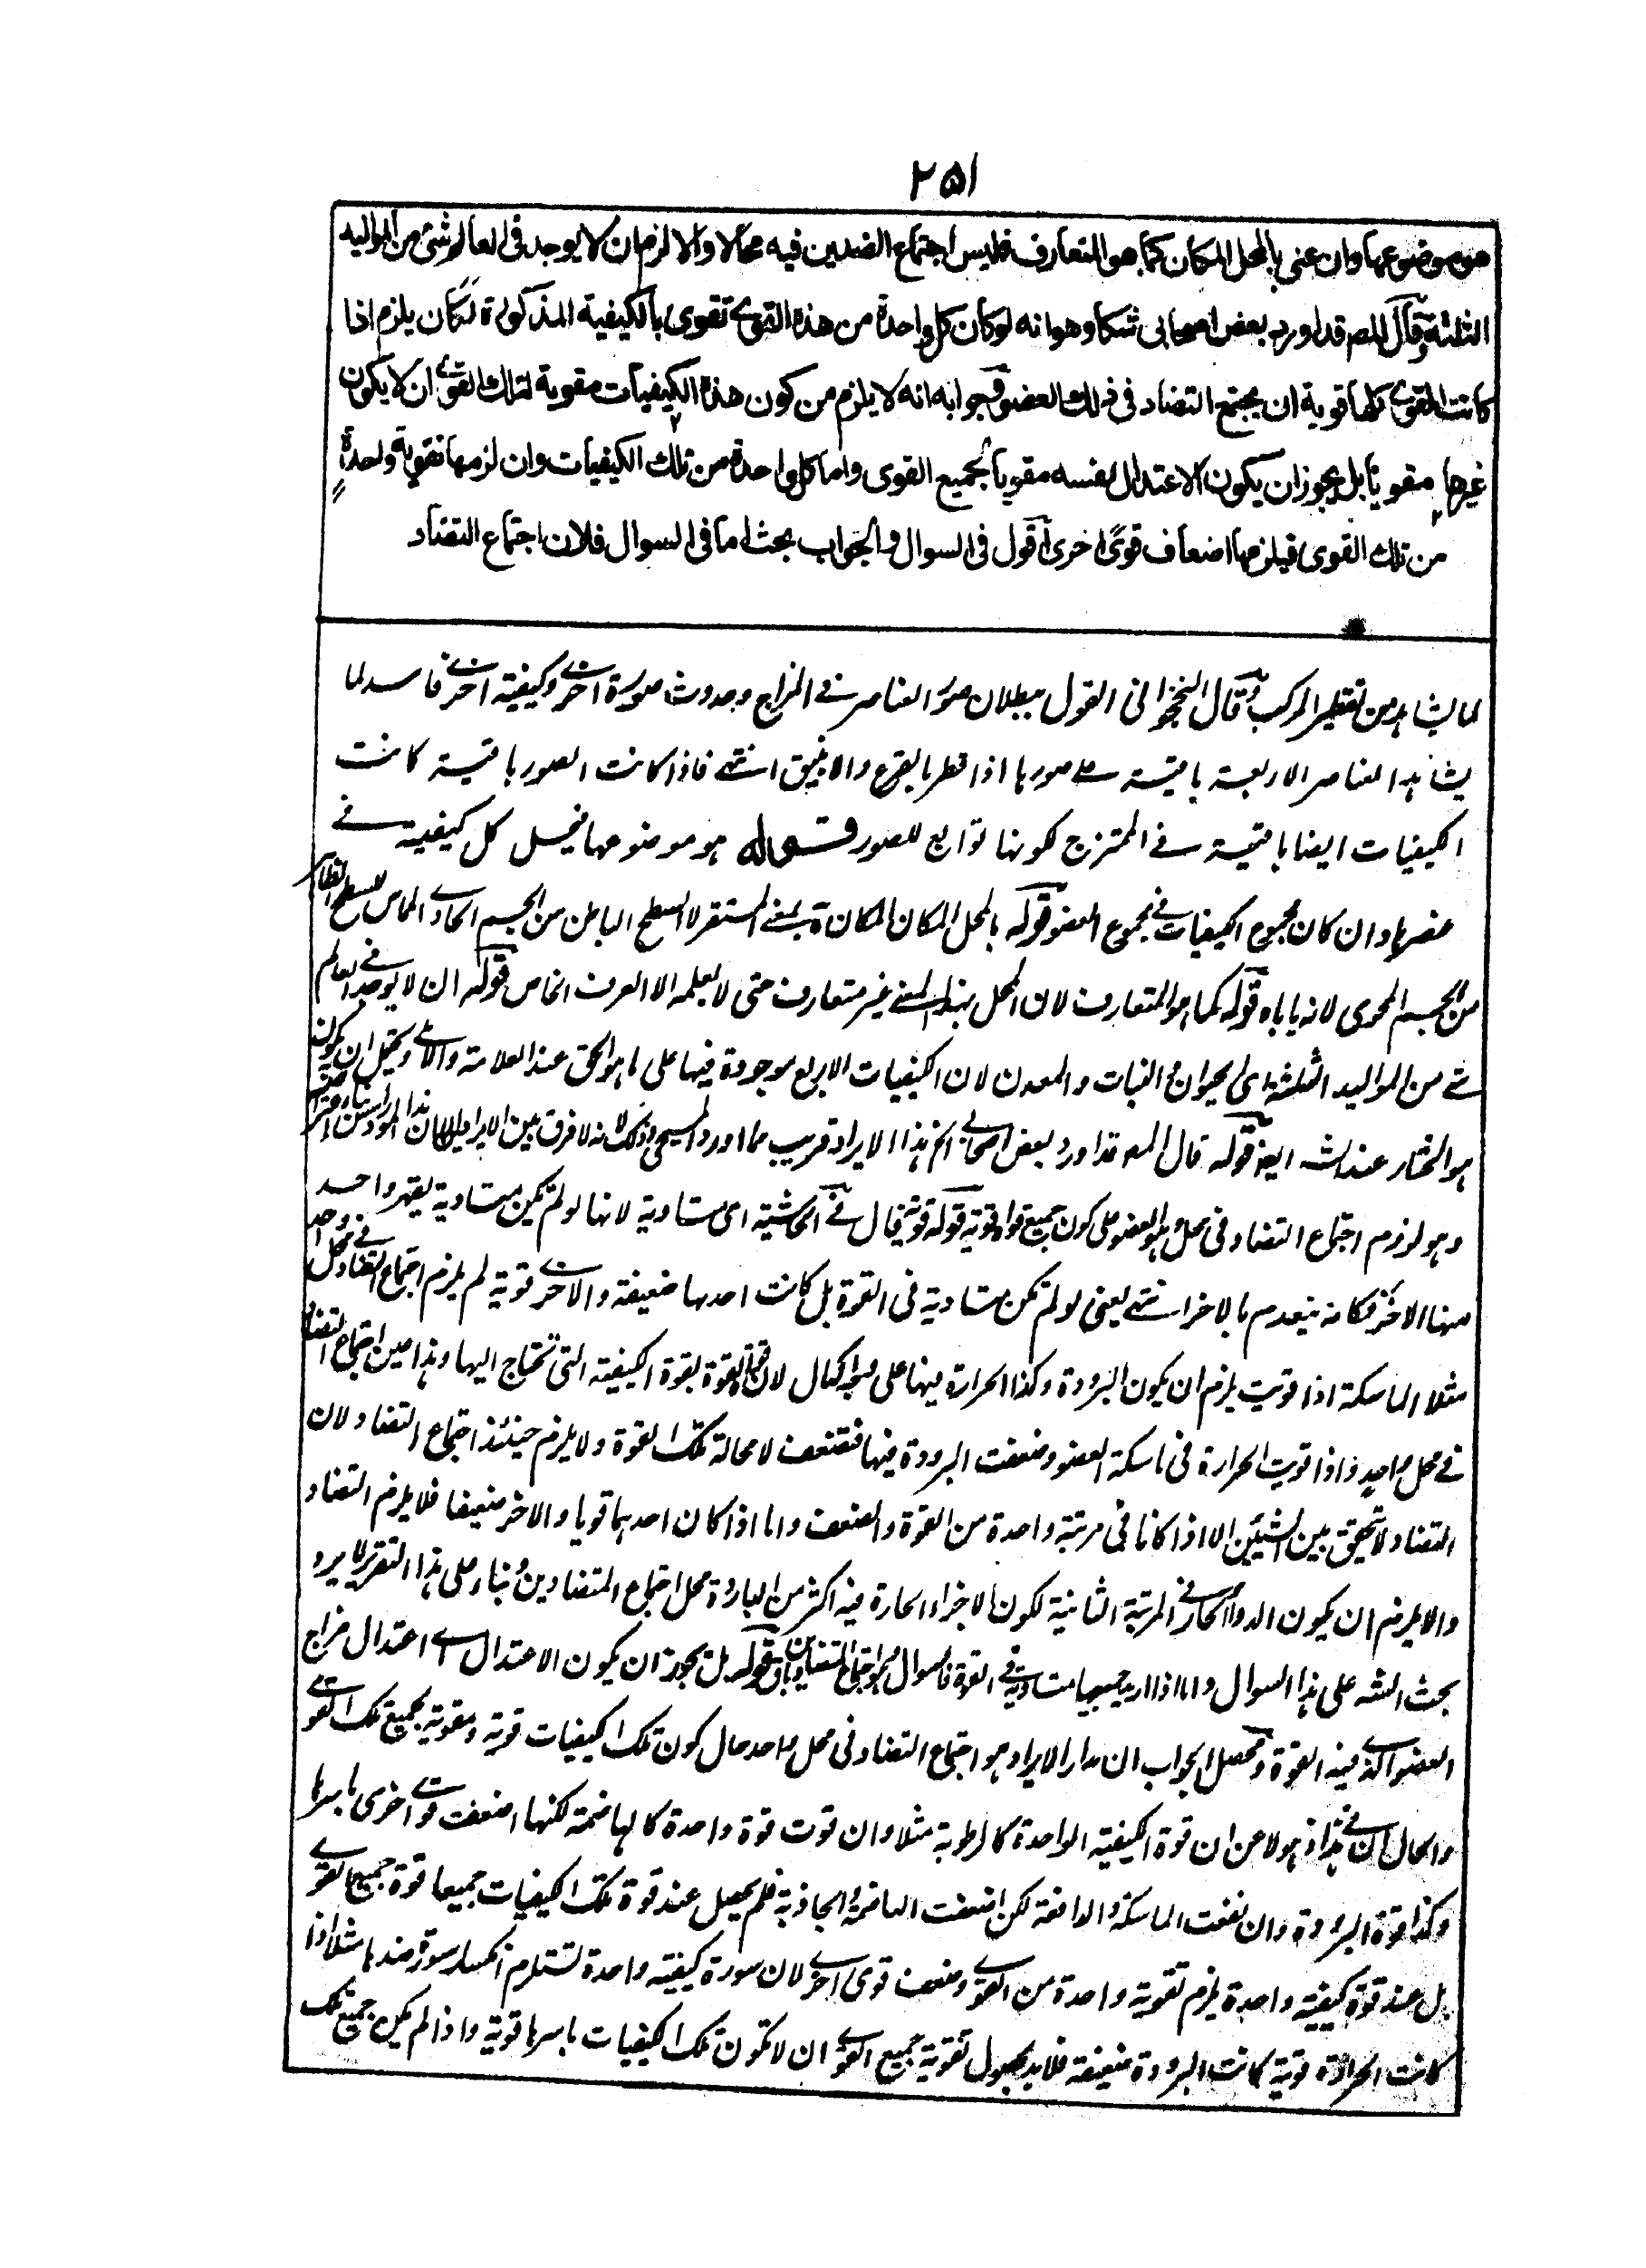 ٢٥١
هو موضوعها وان عنى بالمحل المكان كما هو المتعارف فليس اجتماع الضدين فيه محالا والا لزم ان لا يوجد فى العالم شئ من المواليد
الثلثة وقال المص قد اورد بعض اصحابى شكا وهو انه لو كان كل واحدة من هذه القوى تقوى بالكيفية المذكورة لكان يلزم اذا
كانت القوى كلها قوية ان يجتمع التضاد فى ذلك العضو وجوابه انه لا يلزم من كون هذه الكيفيات مقوية لتلك القوى ان لا يكون
غيرها مقويا بل يجوز ان يكون الاعتدال لنفسه مقويا لجميع القوى واما كل واحدة من تلك الكيفيات وان لزمها تقوية واحدة
من تلك القوى فيلزمها اضعاف قوى اخرى اقول فى السوال والجواب بحث اما فى السوال فلان اجتماع التضاد
لما يشاهد من تقطير المركب وقال النخجوانى القول ببطلان صور العناصر فى المزاج وحدوث صورة اخرى وكيفية اخرى فاسد لما
يشاهد العناصر الاربعة باقية على صورها اذا قطر بالقرع والانبيق انتهى فاذا كانت الصور باقية كانت
الكيفيات ايضا باقية فى الممتزج كونها توابع للصور قوله هو موضوعها فيحل كل كيفية فى
عنصرها وان كان مجموع الكيفيات فى مجموع العضو قوله بالمحل المكان المكان ة بمعنى المستقر لا السطح الباطن من الجسم الحاوى المماس للسطح الظاهر
من الجسم المحوى لانه ياباه قوله كما هو المتعارف لان المحل بهذا المعنى غير متعارف حتى لا يعلمه الا العرف الخاص قوله ان لا يوجد فى العالم
شئ من المواليد الثلثة اى الحيوان والنبات والمعدن لان الكيفيات الاربع موجودة فيها على ما هو الحق عند العلامة والآملى ويحتمل ان يكون
هو المختار عند الشه ايضا قوله قال المص قد اورد بعض اصحابى الخ هذا الايراد قريب مما اورده المسيحى وذلك لانه لا فرق بين الايرادين
وهو لزوم اجتماع التضاد فى محل وهو العضو على كون جميع قواه قوية قوله قوية قال فى الحاشية اى متساوية لانها لو لم تكن متساوية يقهر واحد
منها الاخر فكانه ينعدم بالاخر انتهى يعنى لو لم تكن متساوية فى القوة بل كانت احدها ضعيفة والاخرى قوية لم يلزم اجتماع التضاد فى محل واحد
مثلا الماسكة اذا قويت يلزم ان يكون البرودة وكذا الحرارة فيها على وجه الكمال لان قوة القوة بقوة الكيفية التى تحتاج اليها وهذا عين اجتماع التضاد
فى محل واحد واذا قويت الحرارة فى ماسكة العضو وضعفت البرودة فيها فتضعف لا محالة تلك القوة ولا يلزم حينئذ اجتماع التضاد لان
التضاد لا يتحقق بين الشيئين الا اذا كانا فى مرتبة واحدة من القوة والضعف واما اذا كان احدهما قويا والاخر ضعيفا فلا يلزم التضاد
والا يلزم ان يكون الدواء الحار فى المرتبة الثانية لكون الاجزاء الحارة فيه اكثر من الباردة محل اجتماع المتضادين وبناء على هذا التقرير لا يرد
بحث الشه على هذا السوال واما اذا اريد جميعها متساوية فى القوة فالسوال هو اجتماع المتضادين باق قوله بل يجوز ان يكون الاعتدال اى اعتدال مزاج
العضو الذى فيه القوة ومحصل الجواب ان مدار الايراد هو اجتماع التضاد فى محل واحد حال كون تلك الكيفيات قوية ومقوية لجميع تلك القوى
والحال ان فى هذا ذهولا عن ان قوة الكيفية الواحدة كالرطوبة مثلا وان قوت قوة واحدة كالهاضمة لكنها اضعفت قوى اخرى باسرها
وكذا قوة البرودة وان نفعت الماسكة والدافعة لكن اضعفت الهاضمة والجاذبة فلم يحصل عند قوة تلك الكيفيات جميعا قوة جميع القوى
بل عند قوة كيفية واحدة يلزم تقوية واحدة من القوى وضعف قوى اخرى لان سورة كيفية واحدة تستلزم انكسار سورة ضدها مثلا اذا
كانت الحرارة قوية كانت البرودة ضعيفة فلا بد لحصول تقوية جميع القوى ان لا تكون تلك الكيفيات باسرها قوية واذا لم يكن جميع تلك